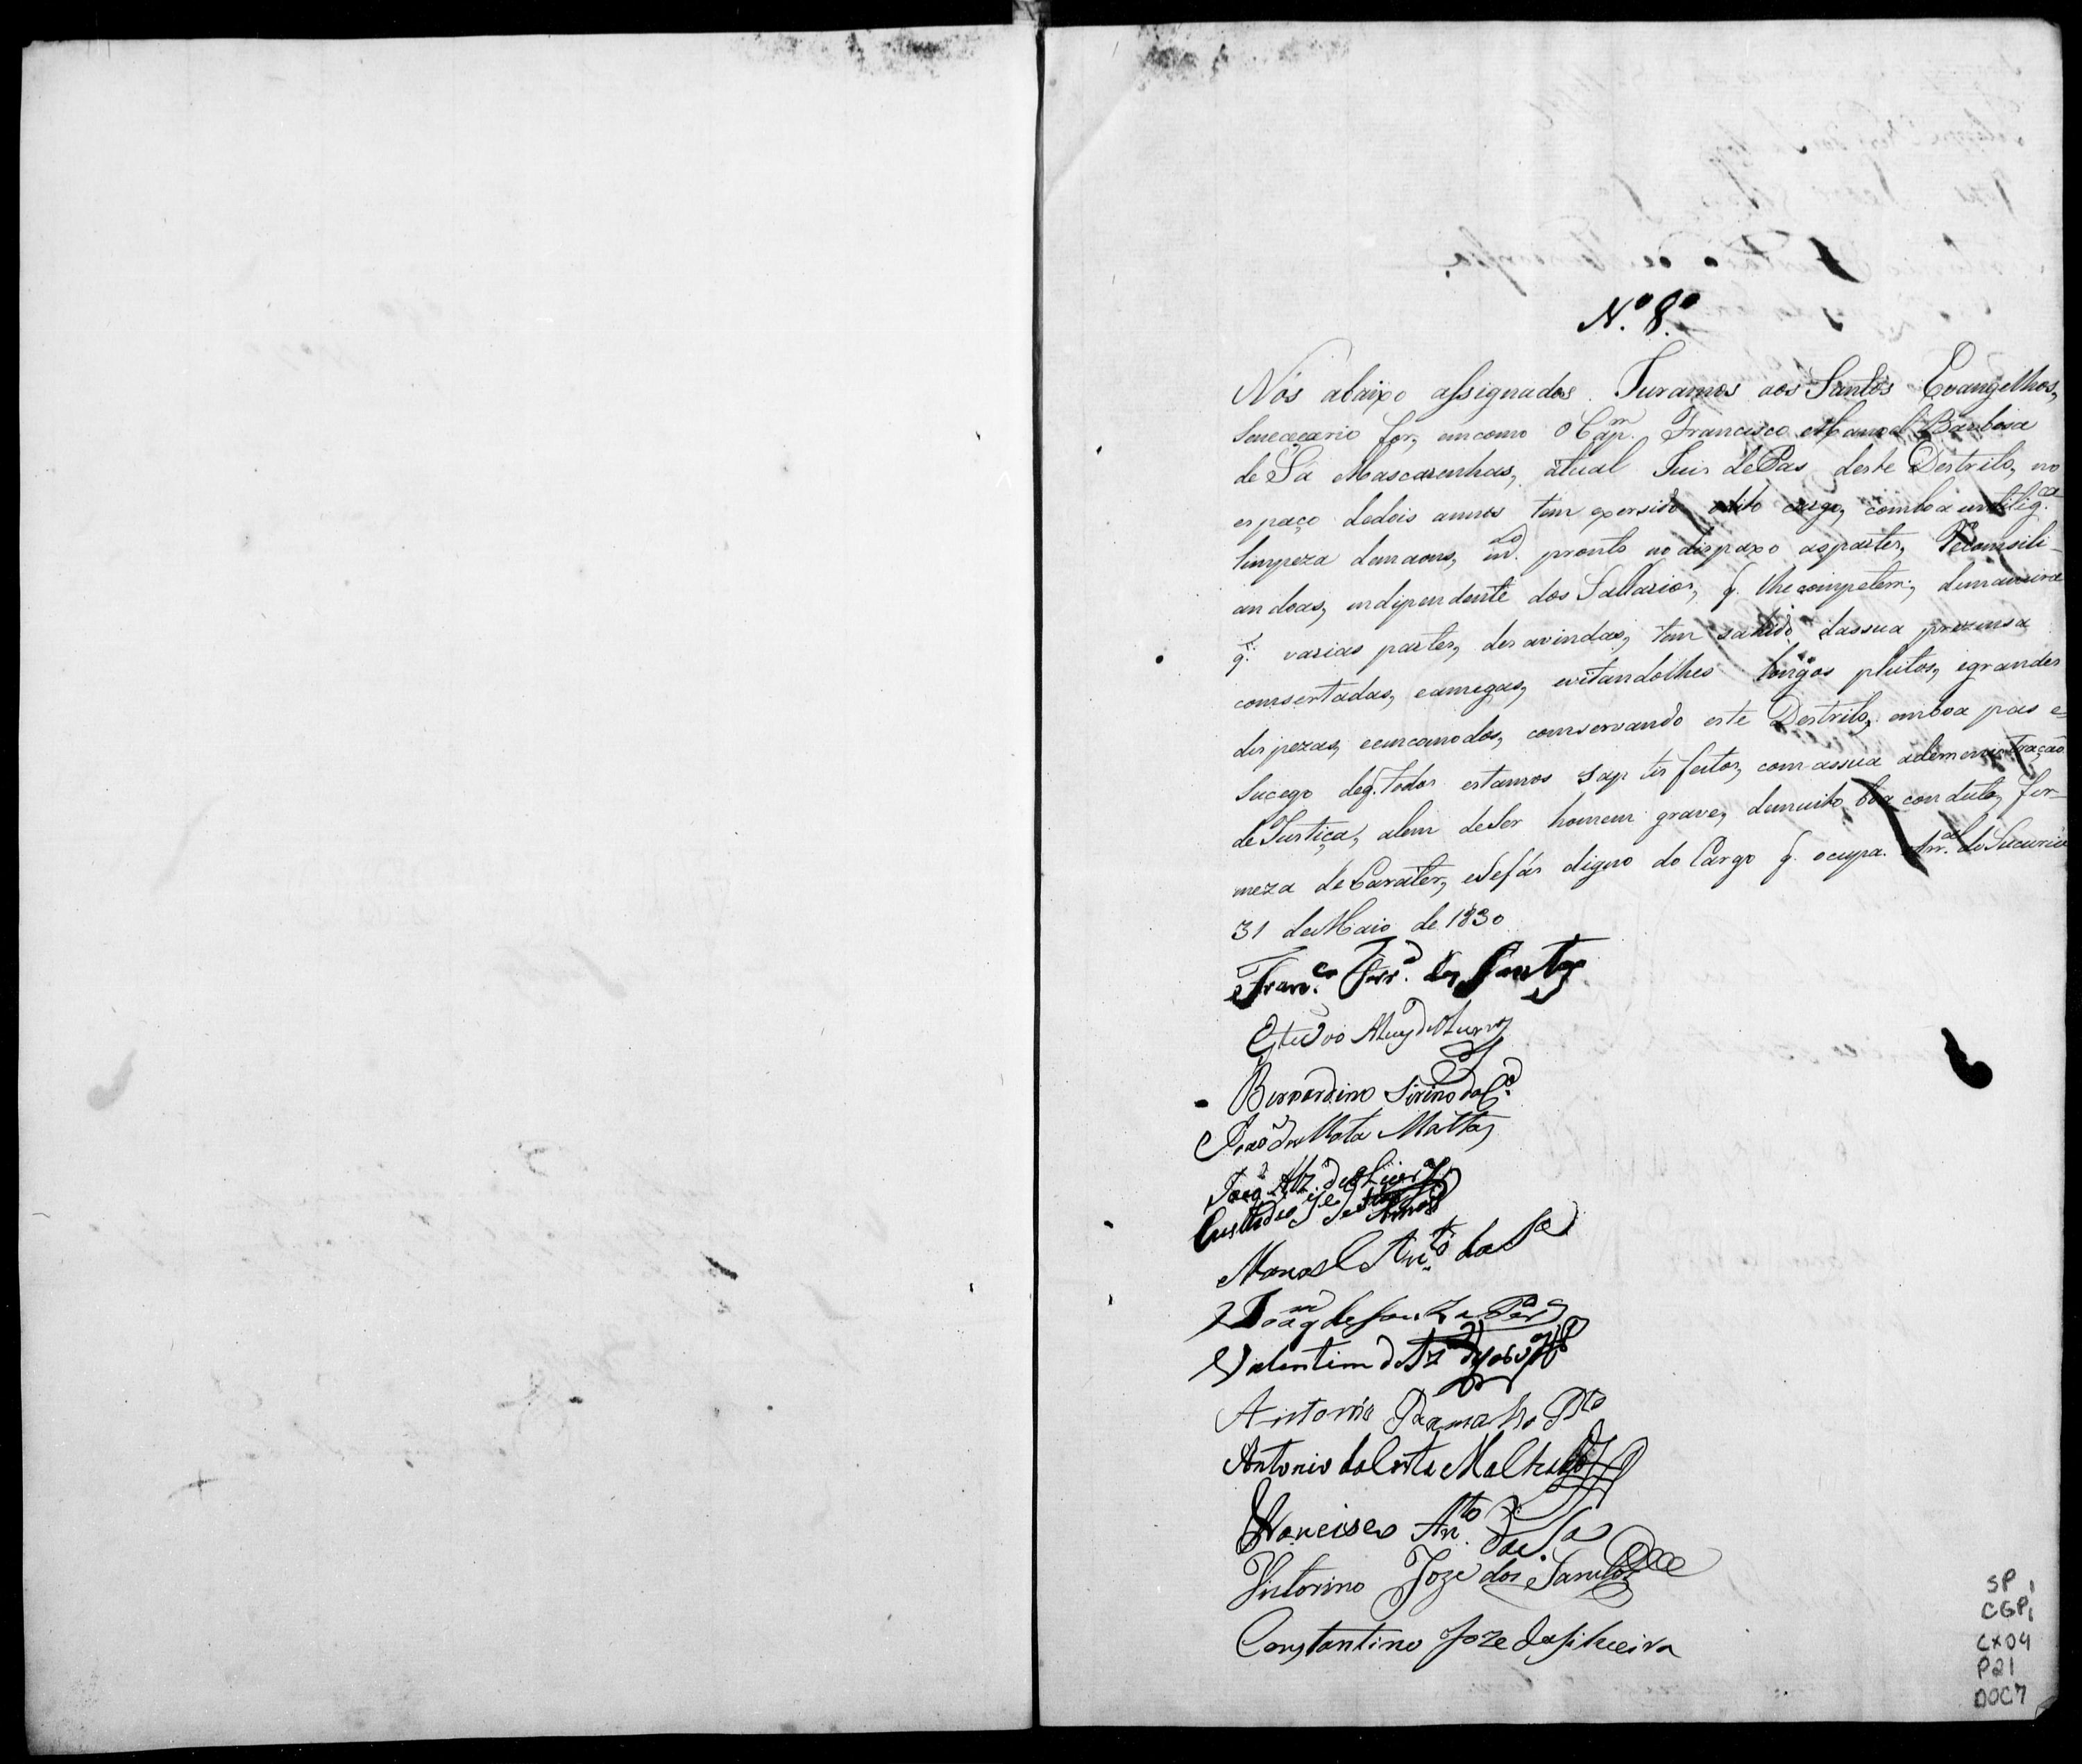 N.º 8.º
Nós abaixo assignados Juramos aos Santos Evangelhos,
Senececario for, em como o Cap.m Francisco Manoel Barbosa
de Sá Mascarenhas, atual Juis de Pas deste Destrito, no
espaço dedois annos tem exersido odito cargo, comboa intilig.ca
limpeza demaons, m.to pronto no dispaxo aspartes, Recomsili-
andoas, indipendente dos Sallarios, q. lhe competem; demaneira
q. varias partes, desavindas, tem sahido dassua prezensa
comsertadas, eamigas, evitandolhes longos pleitos, egrandes
dispezas, eemcomodos, comservando este Destrito, emboa pas e
Sucego deq. todos estamos saptisfeitos, comassuaademenistração
de Justiça, alem deSer homem grave, demuito boa conduta, fir-
meza de Carater, eSefás digno do Cargo q. ocupa. Arr.al do Sucuriú
31 de Maio de 1830
Fran.co Ferr.a dos Santos
Bernardino Sirino da C.ª
João da Mata Mattos
Manoel Ant.º da S.a
Joaq.m de Souza Per.a
Valentim
Antonio Ramalho P.to
Antonio da Costa Malheiro
Francisco An.to da S.a
Victorino Joze dos Santos
Constantino Joze da Silveira
SP
CGP1
CX04
P21
DOC7